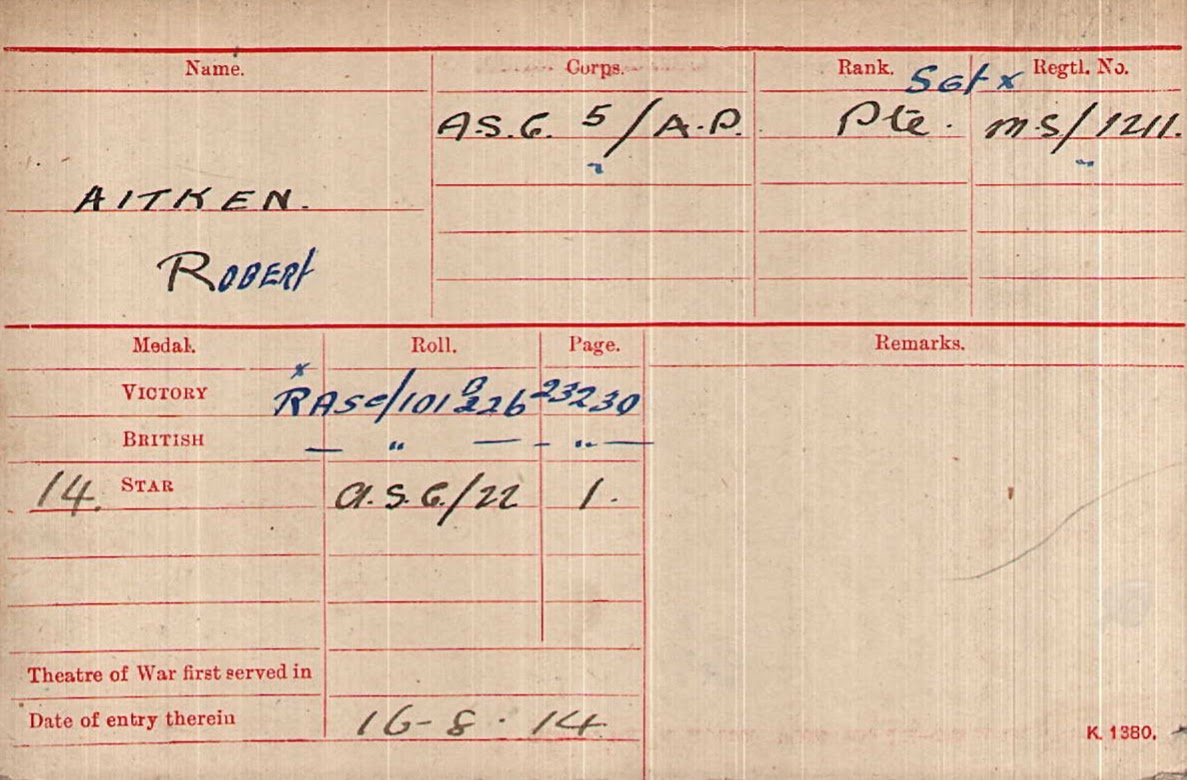 Name. Corps. Rank. Sgt x Regtl. No.
A.S.C. 5/A.P. Pte. M.S/1211.
" "
AITKEN.
ROBERT
Medal. Roll. Page. Remarks.
x
VICTORY RASC/101 B 226 23230
BRITISH — " — - " —
14. STAR A.S.C/22 1.
Theatre of War first served in
Date of entry therein 16-8-14
K. 1380.